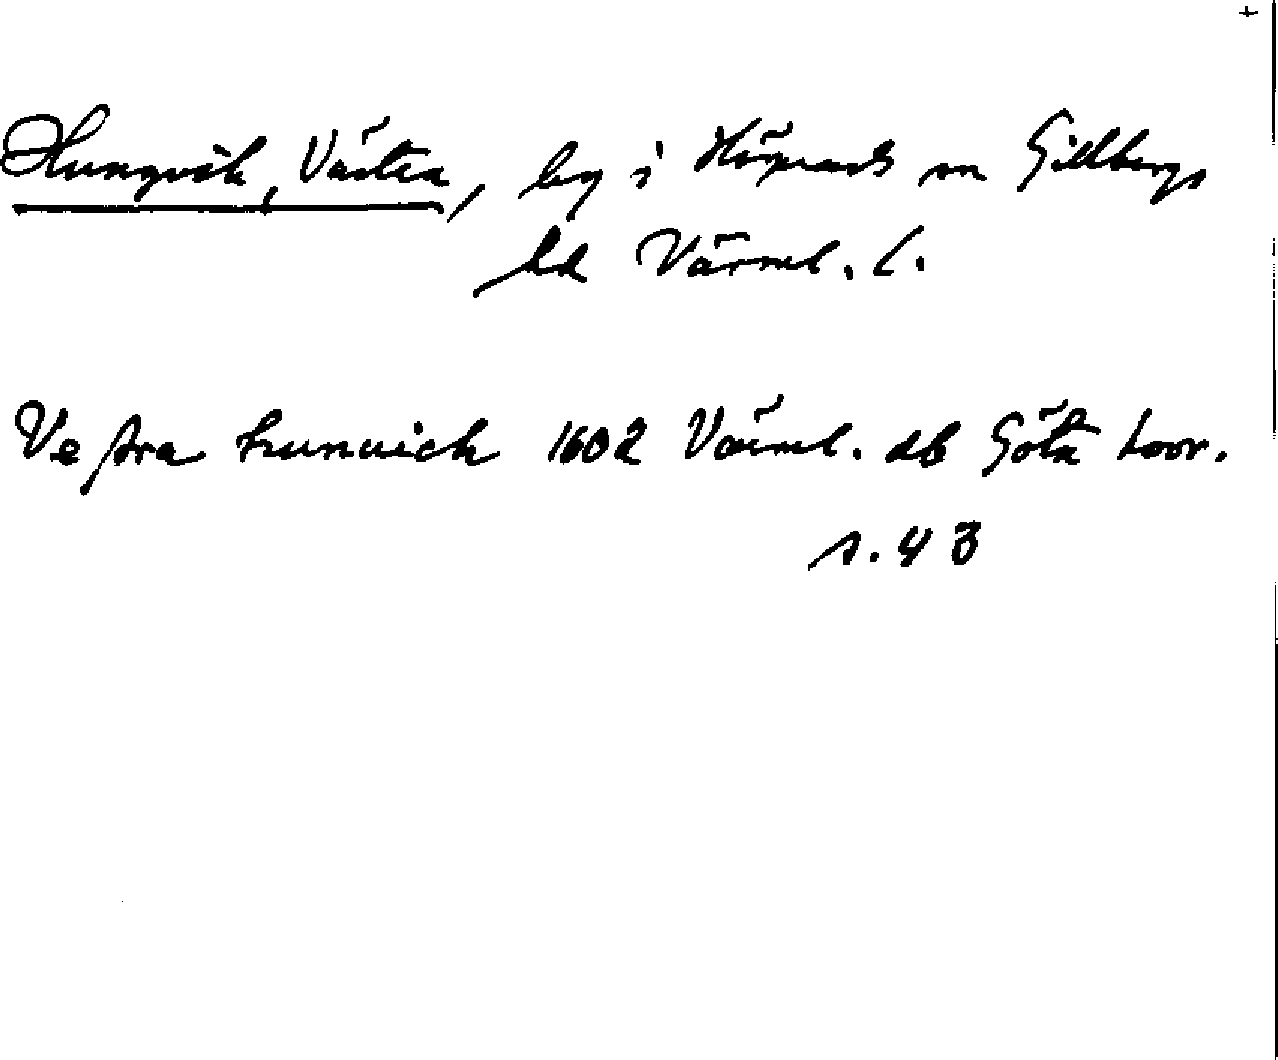 +
Hungvik, Västra, by i Högeruds sn Gillbergs
hd Värml. l.
Vestra hunuich 1602 Värml. db Göta hovr.
s. 43